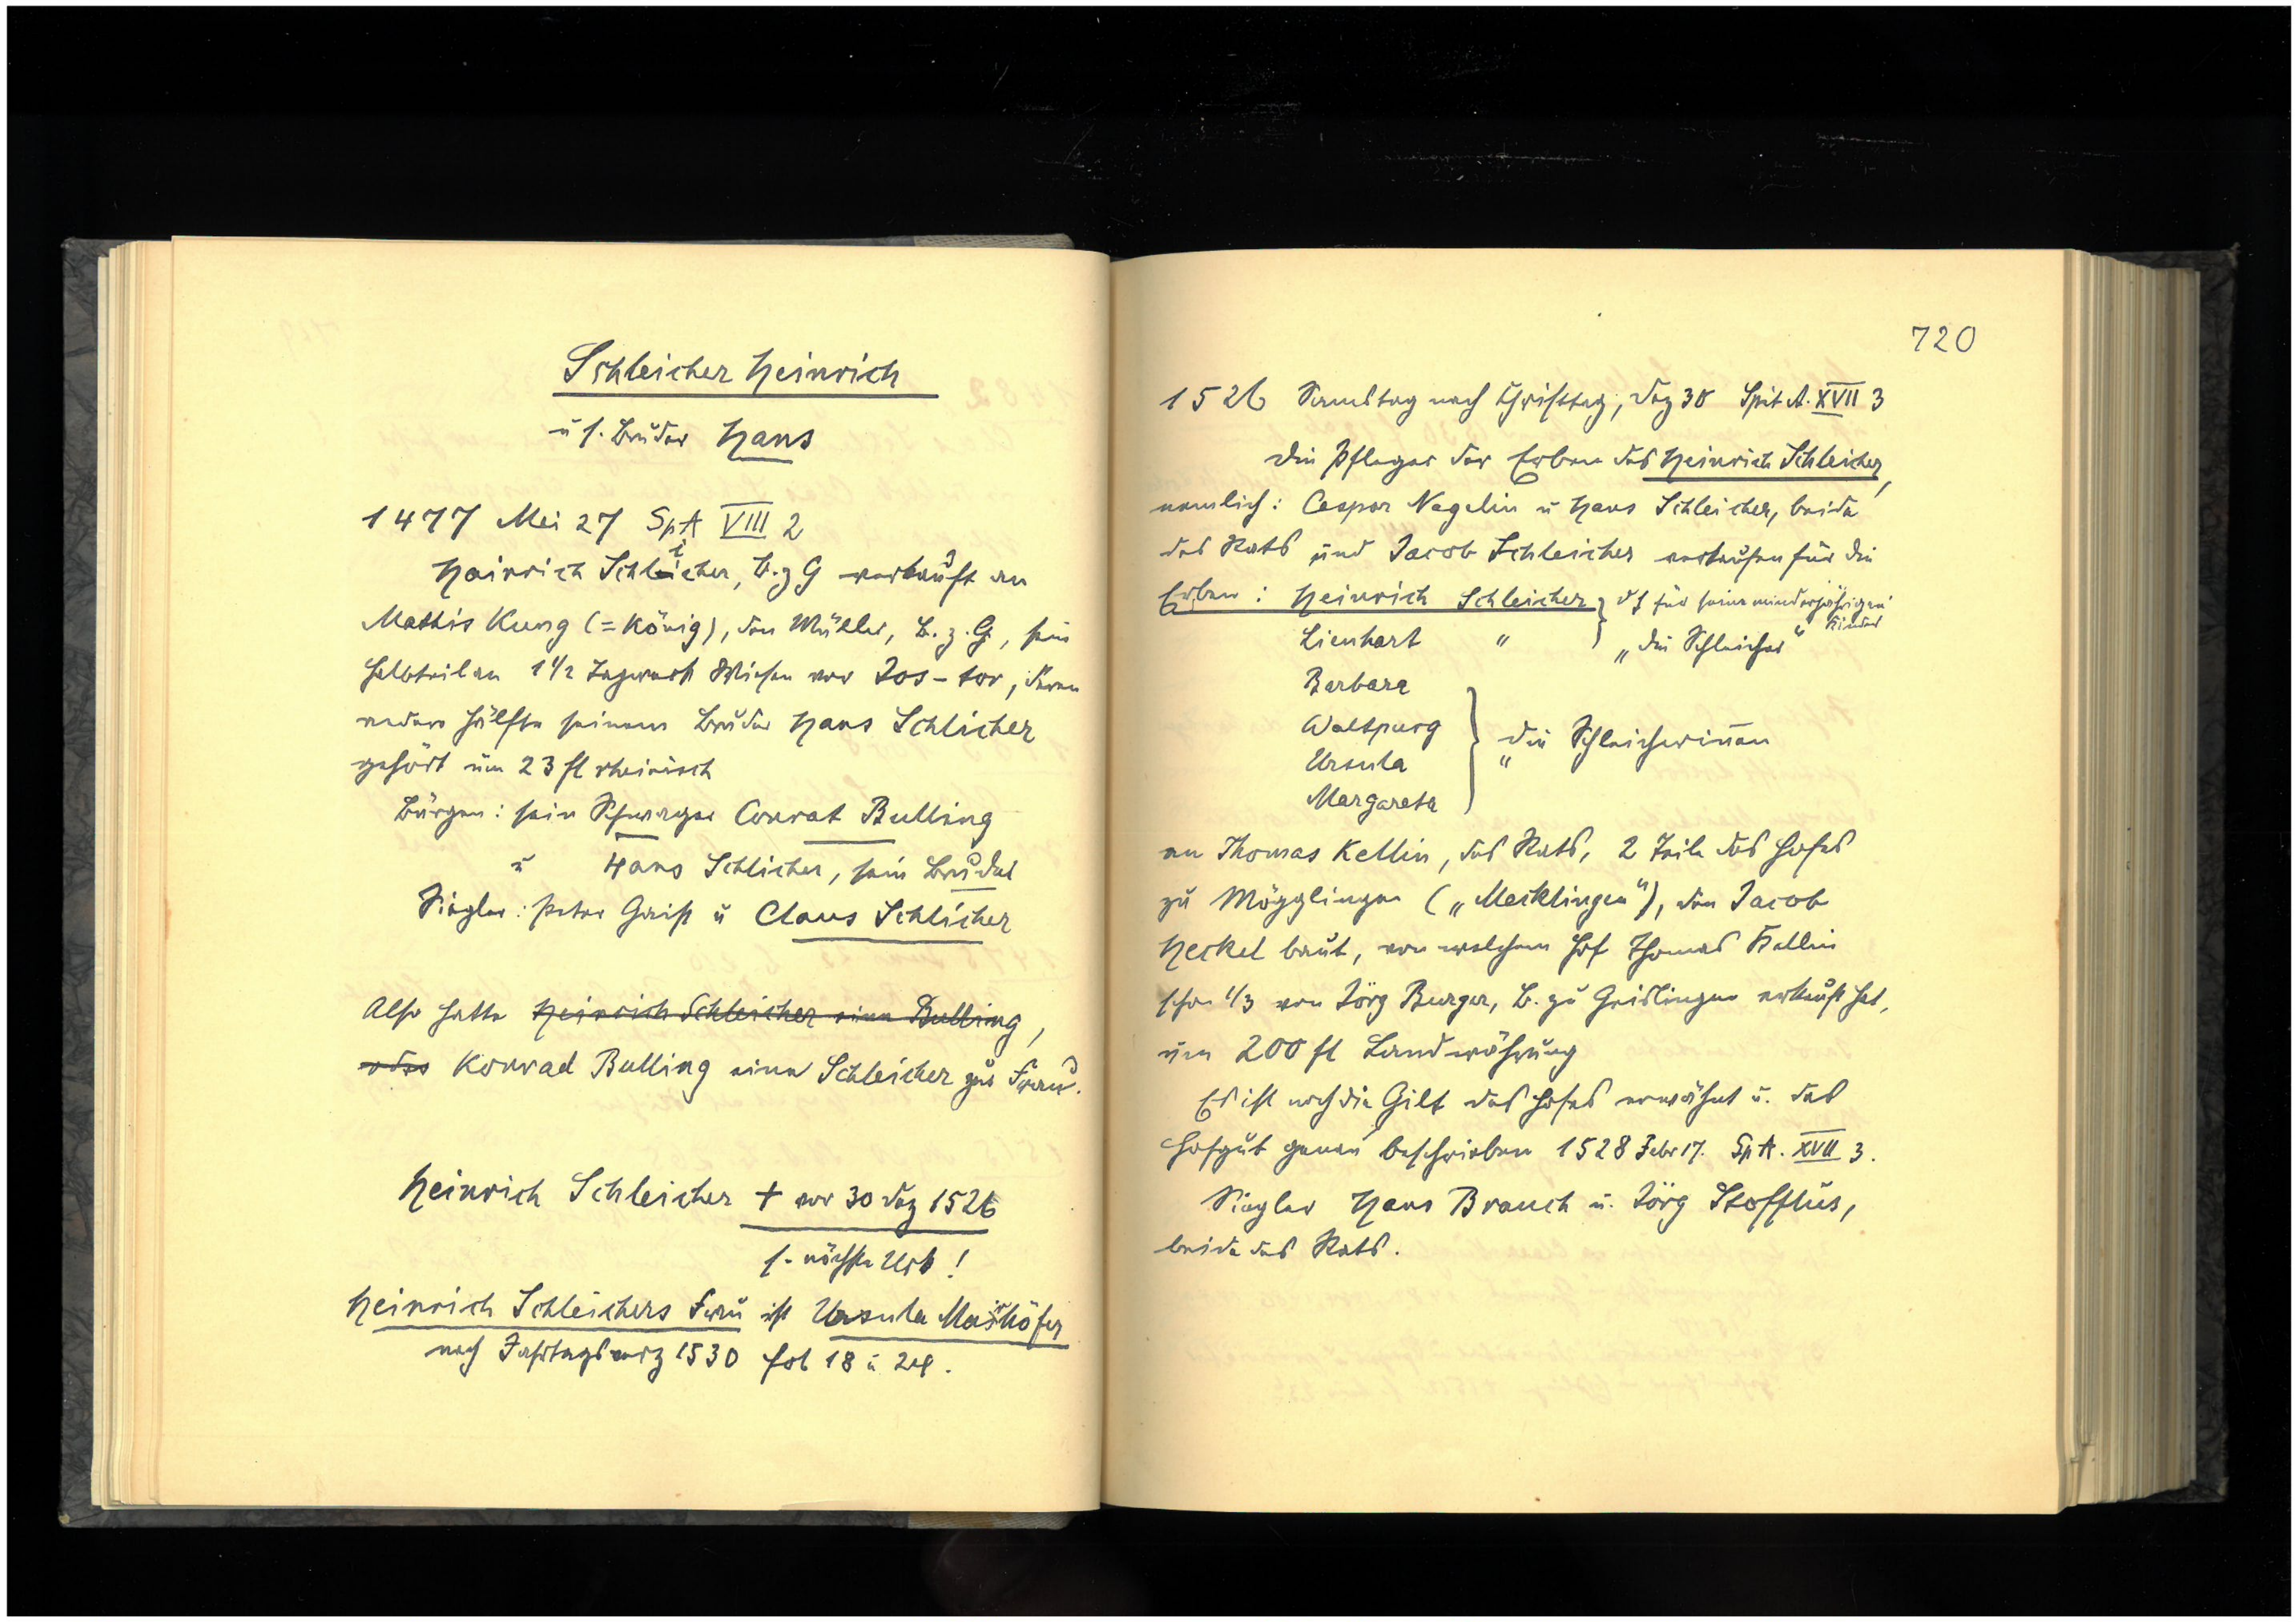 Schleicher Heinrich
u s. Bruder Hans
1477 Mai 27 SpA VIII 2
Hainrich Schleicher, B. z G verkauft an
Mathis Kung (= König), den Müller, B. z. G, sein
Halbteil an 1 1/2 Tagwerk Wiesen vor Jos-tor, deren
andere Hälfte seinem Bruder Hans Schlicher
gehört um 23 fl rheinisch
Bürgen: sein Schwager Conrat Bulling
u Hans Schlicher, sein Bruder
Siegler: Peter Gaiß u Claus Schlicher
Also hatte Heinrich Schleicher eine Bulling,
oder Konrad Bulling eine Schleicher zur Frau.
Heinrich Schleicher † vor 30 Dez 1526
s. nächste Urk!
Heinrich Schleichers Frau ist Ursula
nach Jahrtagsverz 1530 fol 18 u 24.
720
1526 Samstag nach Christtag, Dez 30 Spit A. XVII 3
Die Pfleger der Erben des Heinrich Schleicher,
nemlich: Caspar Nagelin u Hans Schleicher, beide
des Rats und Jacob Schleicher verkaufen für die
Erben: Heinrich Schleicher } dh für seine minderjährigen Kinder
Lienhart " } „die Schleicher“
Barbara
Waltpurg
Ursula } die Schleicherinnen "
Margareta
an Thomas Kellin, des Rats, 2 Teile des Hofes
zu Mögglingen („Mecklingen“), den Jacob
Heckel baut, von welchem Hof Thomas Kellin
schon 1/3 von Jörg Burger, B. zu Geislingen erkauft hat,
um 200 fl Landwährung
Es ist noch die Gilt des Hofes erwähnt u. das
Hofgut genau beschrieben 1528 Febr 17. SpA. XVII 3.
Siegler Hans Brauch u. Jörg Stofflus,
beide des Rats.